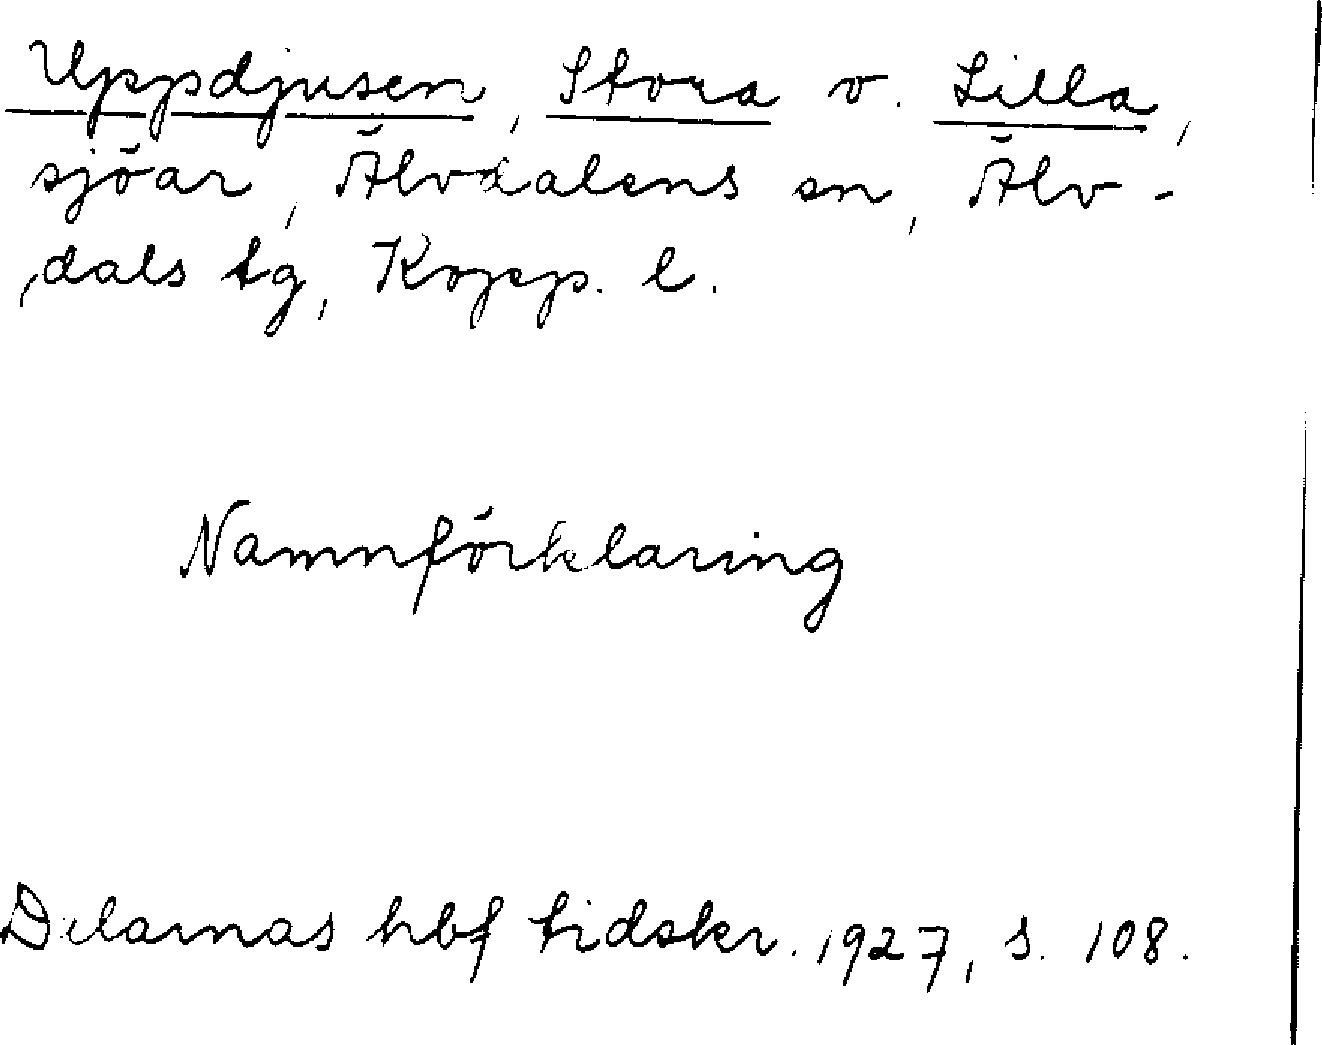 Uppdjusen, Stora o. Lilla,
sjöar, Älvdalens sn, Älv-
dals tg, Kopp. l.
Namnförklaring
Dalarnas hbf tidskr. 1927, s. 108.